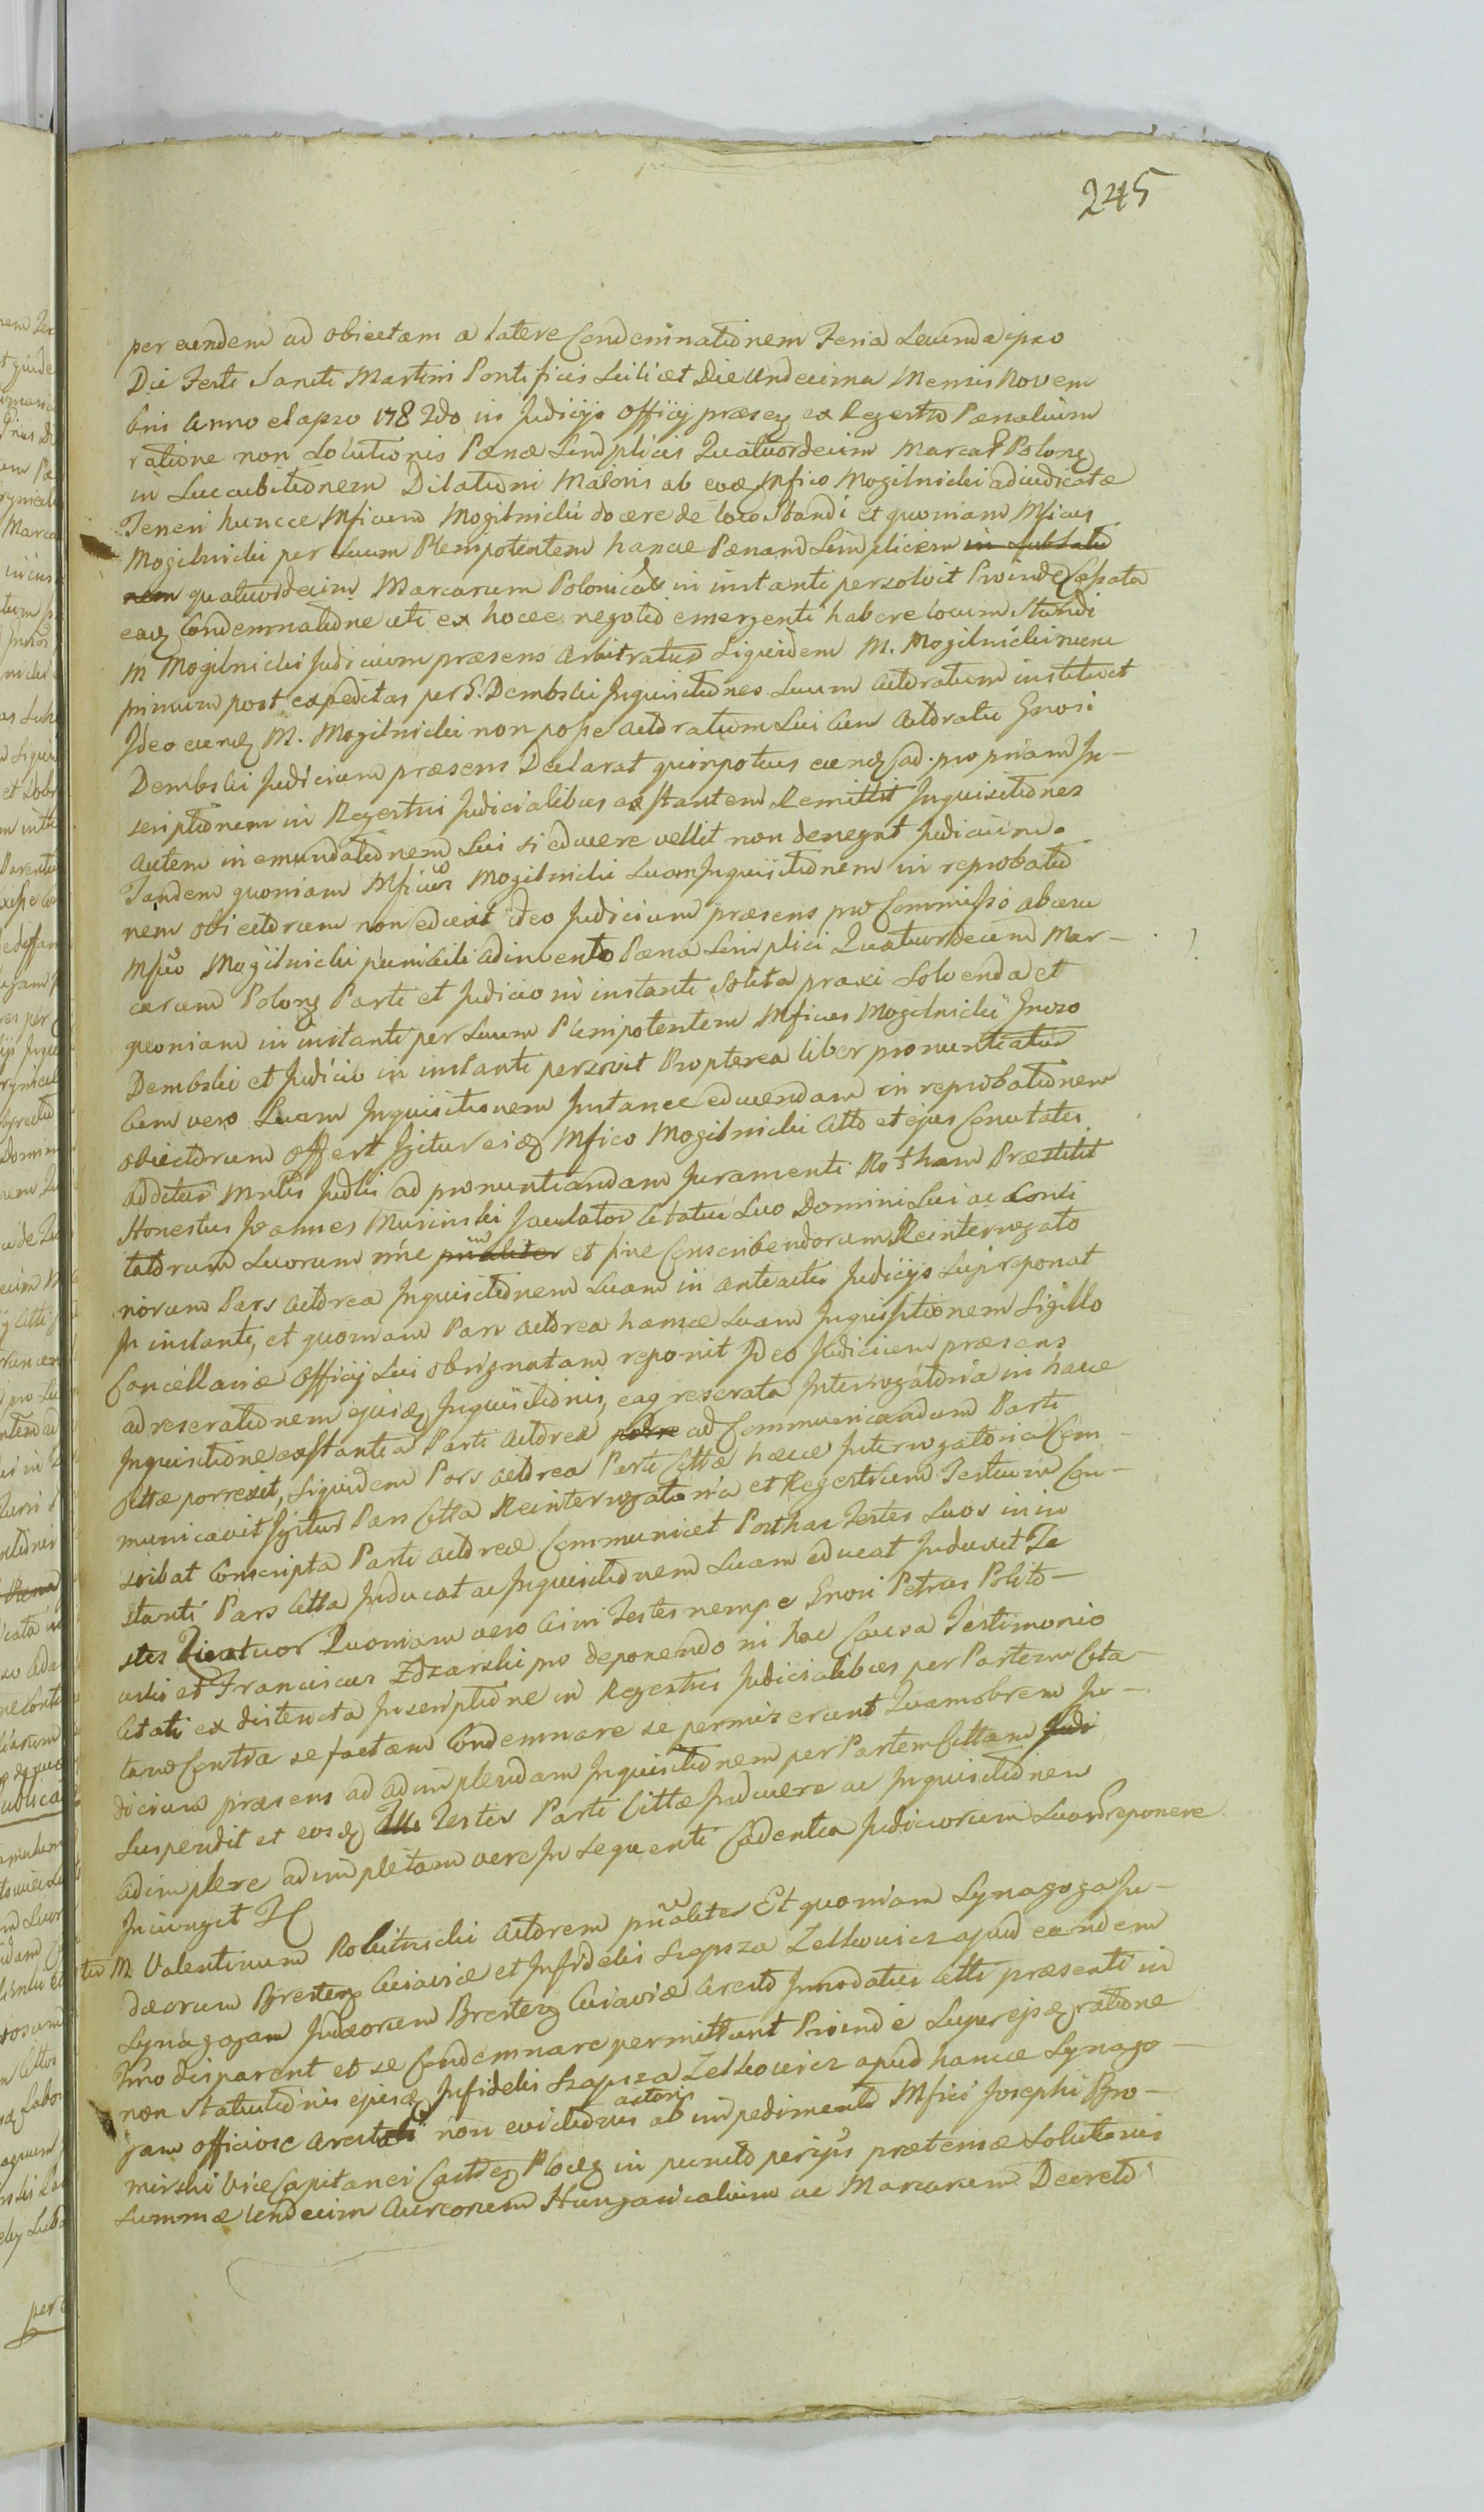 245
per eundem ad obiectam a latere Condemnationem Feria Secunda ipso
Die Festi Sancti Martini Pontificis Scilicet Die Undecima Mensis Novem
bris Anno elapso 1782do in Judicijs Officij præseq ex Regestro Pænalium
ratione non Solutionis Pænæ Simplicis Quatuordecim Marcar Polonq
in Succubitionem Dilationi Maioris ab eoq Mfico Mogilnicki adiudicatæ
Teneri huncce Mficum Mogilnicki docere de loco Standi et quoniam Mficus
Mogilnicki per Suum Plenipotentem hancce Pænam Simplicem in Subsatio
nem quatuordecim Marcarum Polonical in instanti persolvit Proinde Cassata
eaq Condemnatione uti ex hocce negotio emergenti habere locum Standi
M Mogilnicki Judicium præsens arbitratur Siquidem M. Mogilnicki nunc
primum post expeditas per G. Dembski Inquisitiones Suum Actoratum instituit
Ideo eunq M. Mogilnicki non posse Actoratum Sui cum Actoratu Gnosi
Dembski Judicium præsens Declarat quinpotius eunq ad propriam In-
scriptionem in Regestris Judicialibus exstantem Remittit Inquisitiones
autem in emundationem Sui si educere vellit non denegat Judicium.
Tandem quoniam Mficus Mogilnicki Suam Inquisitionem in reprobatio
nem obiectorum non eduxit ideo Judicium præsens pro Commisso abusu
Mfico Mogilnicki punibili adinvento Pæna Simplici Quatuordecim Mar-
carum Polonq Parti et Judicio in instanti Solita praxi Solvenda et
quoniam in instanti per Suum Plenipotentem Mficus Mogilnicki Gnoso
Dembski et Judicio in instanti persolvit Propterea liber pronuntiatur
Cum vero Suam Inquisitionem Instance educendam in reprobationem
obiectorum offert Igitur eiq Mfico Mogilnicki Citto et ejus Comitatis
additur Mnlis Judlis ad pronuntiandam Juramenti Rotham Præstitit
Honestus Joannes Musinski Jaculator Citatui Suo Domini Sui ac Conci
tatorum Suorum nne et sine Conscribendorum Reinterrogato
riorum Pars Actorea Inquisitionem Suam in anteactis Judicijs Supreponat
In instanti, et quoniam Pars Actorea hancce Suam Inquisitionem Sigillo
Concellariæ Officij Sui obsignatam reponit Ideo Judicium præsens
ad reserationem ejusq Inquisitionis, eaq reserata Interrogatoria in hacce
Inquisitione exstantia Parti Actorea ad Communicandum Parti
Cittæ porrexit, Siquidem Pars Actorea Parti Cittæ hæcce Interrogatoria Com-
municavit Igitur Pars Citta Reinterrogatoria et Regestrum Testium Con-
scribat Conscripta Parti Actoreæ Communicet Posthac Testes Suos in in
stanti Pars Citta Inducat ac Inquisitionem Suam educat Induxit Te
stes Quatuor Quoniam vero bini Testes nempe Gnosi Petrus Polito-
wski et Franciscus Zdzarski pro deponendo in hac Causa Testimonio
Citati ex distincta Inscriptione in Regestris Judicialibus per Partem Cita-
tam Contra se factam Condemnare se permiserunt Quamobrem Ju-
dicium præsens ad adimplendam Inquisitionem per Partem Cittam Judi
Suspendit et eosq Testes Parti Cittæ Inducere ac Inquisitionem
adimplere adimpletam vero In sequenti Cadentia Judiciorum Suorum reponere
Iniungit H
M Valentinum Robitnicki Actorem pnnaliter Et quoniam Synagoga Ju-
dæorum Bresteq Cuiaviæ et Infidelis Szapsza Zelkowicz apud eandem
Synagogam Judæorum Bresteq Cuiaviæ Aresto Innodatus Citti præsenti in
Tmo disparent et se Condemnare permittunt Proinde Super ejsq ratione
non Statuitionis ejusq Infidelis Szapsza Zelkowicz apud hancce Synago-
gam officiose Arestati non evictionis actoris ab impedimento Mfici Josephi Pro-
mirski Vice Capitanei Castreq Ploceq in puncto perijus prætensæ Solutionis
Summæ Undecim Aureorum Hungaricalium ac Marcarum Decreto